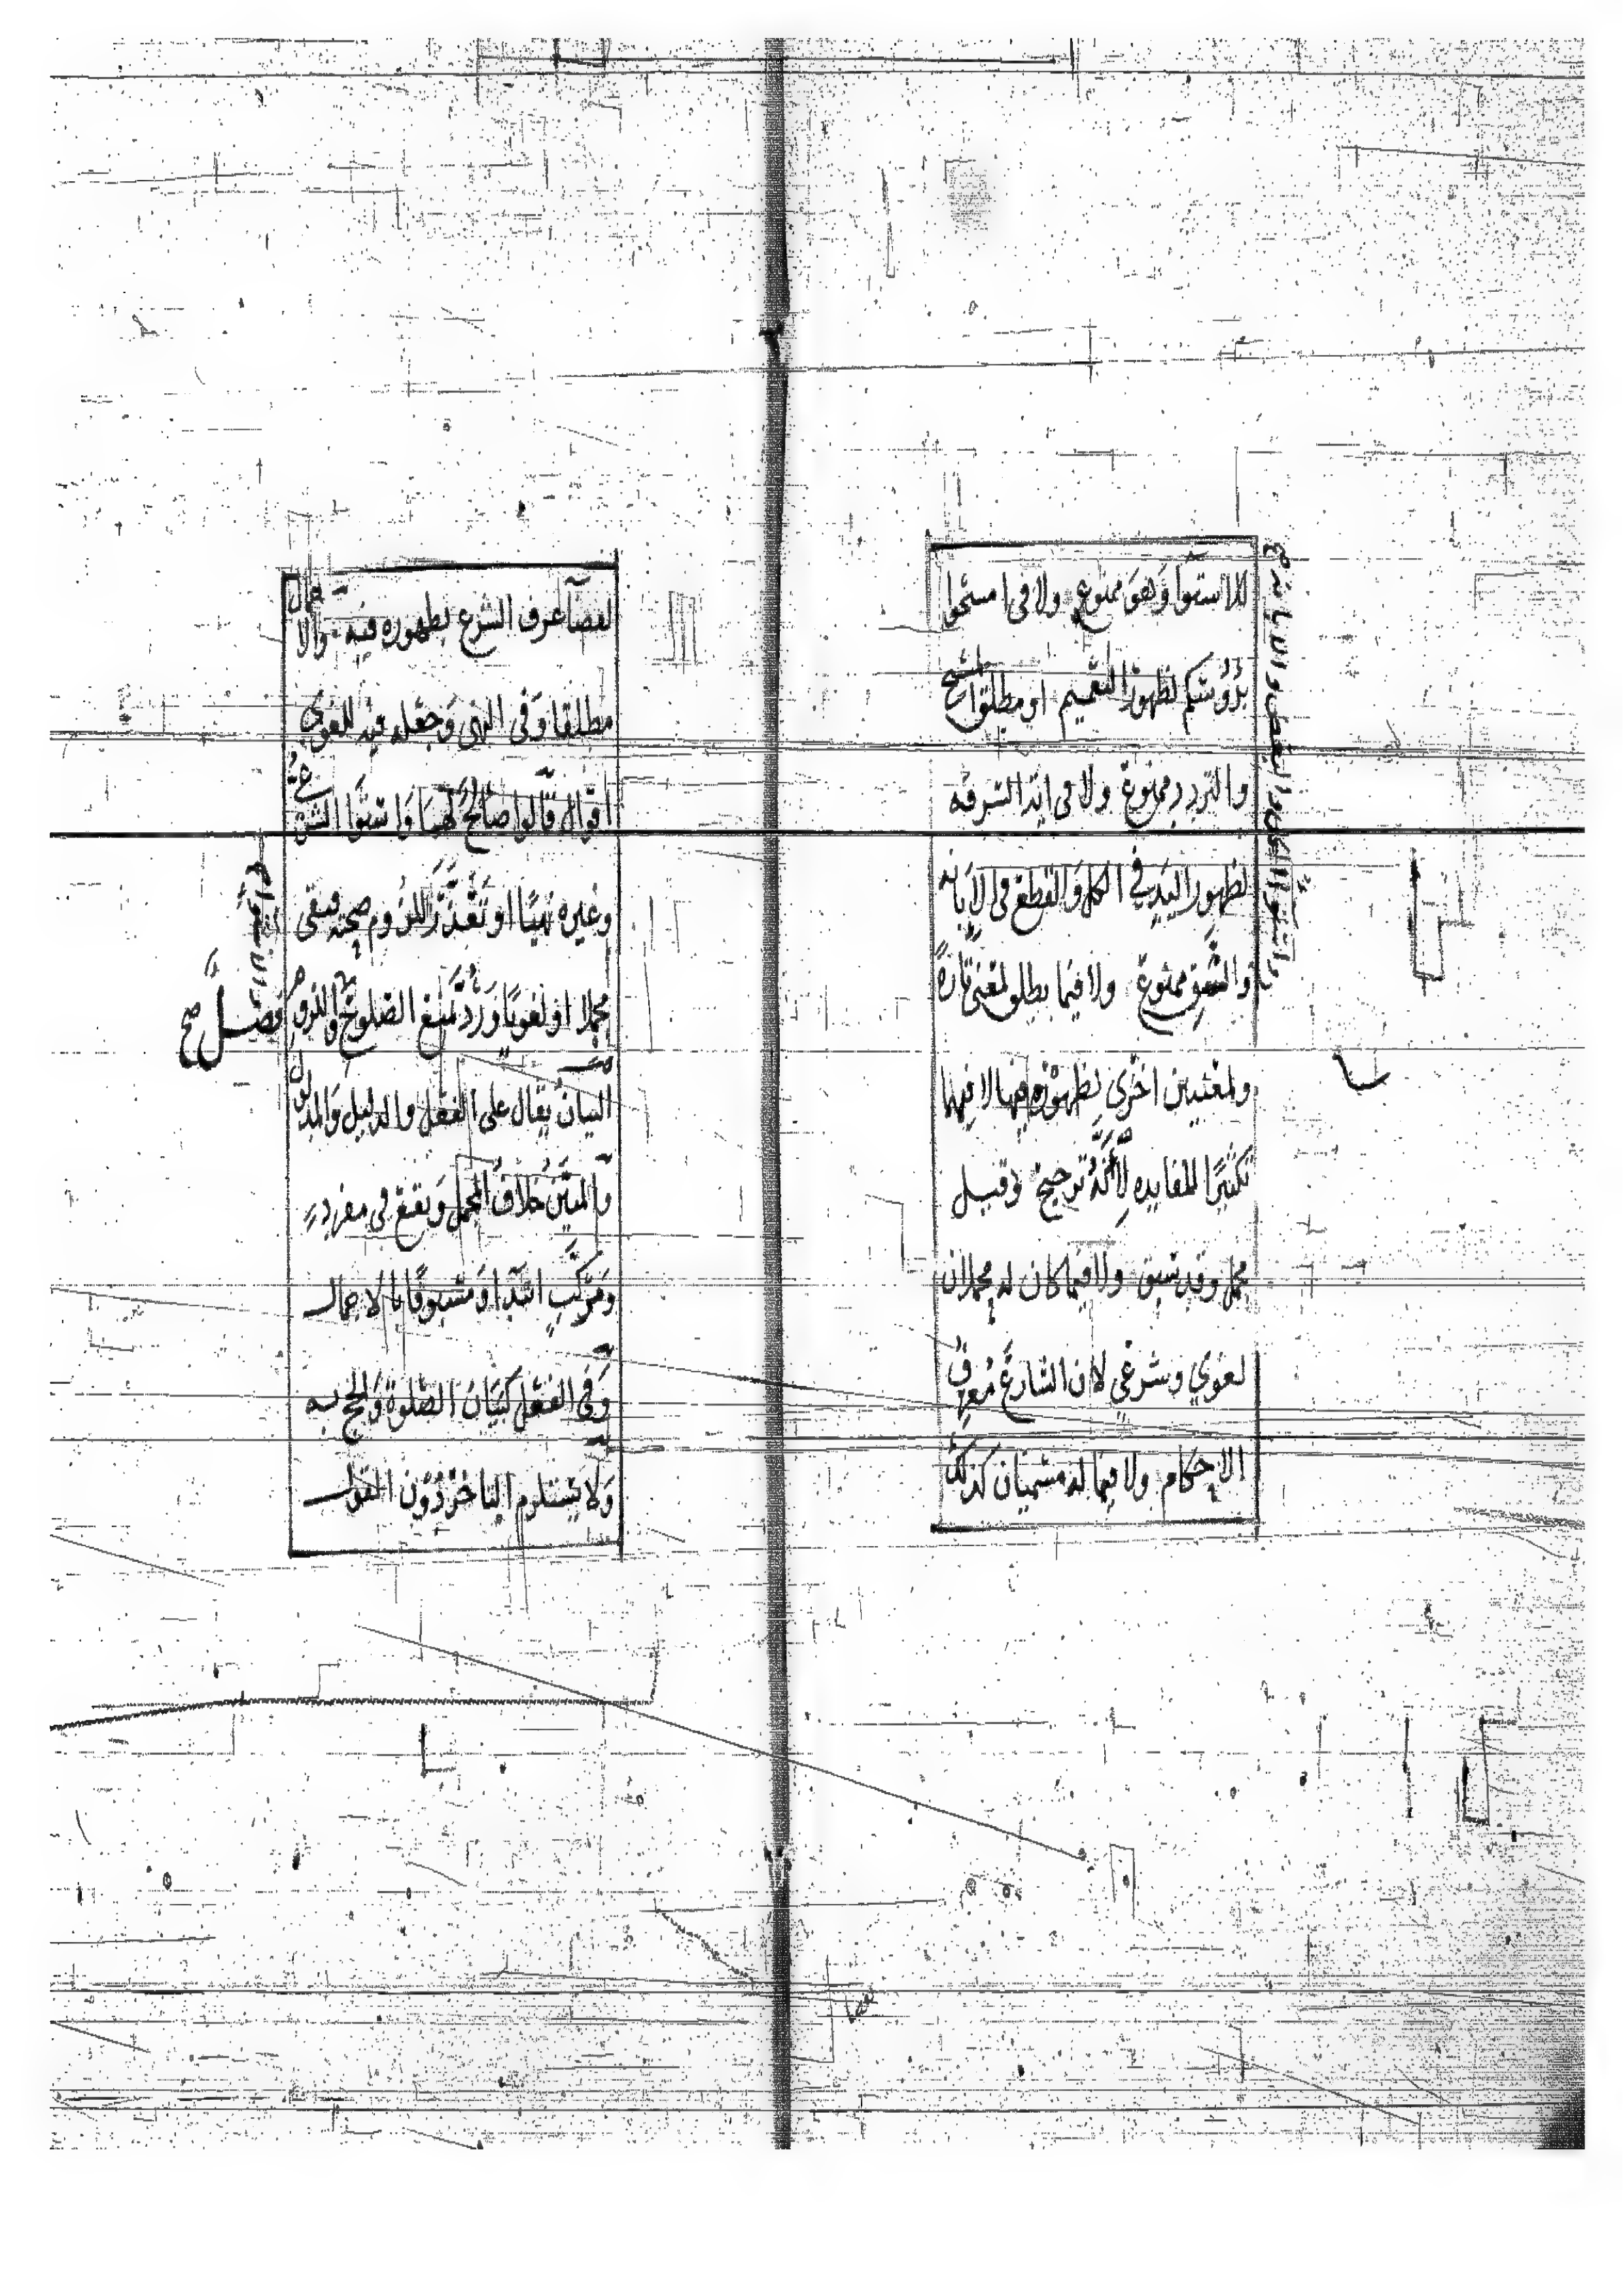 للاستوا وَهوَ ممنوع ولا فى امسحوا
برؤوسكم لظهور التعميم او مطلق المسح
والتردد ممنوع ولا فى اية السرقه
لظهور اليد في الكل وَالقطع فى الاِبانه
والشق ممنوع ولا فيما يطلق لمعنى تارة
ولمعنيين اخرى لظهوره فيهما لا فيهما
تكثيرًا للفايده لأنّه ترجيح وقيل
مجمل وقد سبق ولا فيما كان له محملان
لغوي وشرعي لان الشارع مُعرِفُ
الاحكام ولا فيما له مسميان كذلك
لعضا عرف الشرع بظهوره فيه والا
مطلقا وَفى النهى وَجعله فيه للغوي
اقوال قالوا صالح لهما وَاستوا
وغيره نهيًا او تعذّر للزوم صحته فبقى
مجملا او لغويًا وَرُدّ بمنع الصلوح واللزوم
فصل صح
البيان يقال على الفعل والدليل وَالمدلول
وَالمبيَّن خلافُ المجمل وَيقع فى مفردٍ
ومركّبٍ ابتدا وَمسبوقًا بالاجمال
وَفى الفعل كبيَان الصلوة وَالحج به
وَلا يستلزم التاخر دُون القول